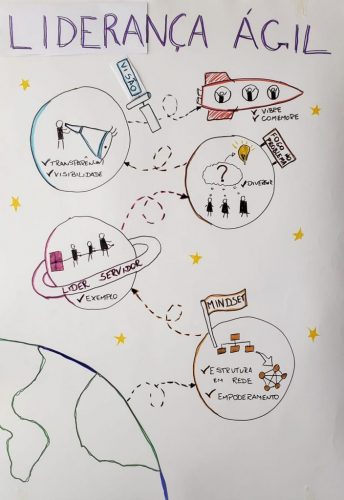 LIDERANÇA ÁGIL
VISÃO
✓ VIBRE
✓ COMEMORE
✓ TRANSPARÊNCIA
✓ VISIBILIDADE
FOCO NO
PROBLEMA
?
✓ DIVERGIR
LIDER SERVIDOR
✓ EXEMPLO
MINDSET
✓ ESTRUTURA
EM REDE
✓ EMPODERAMENTO